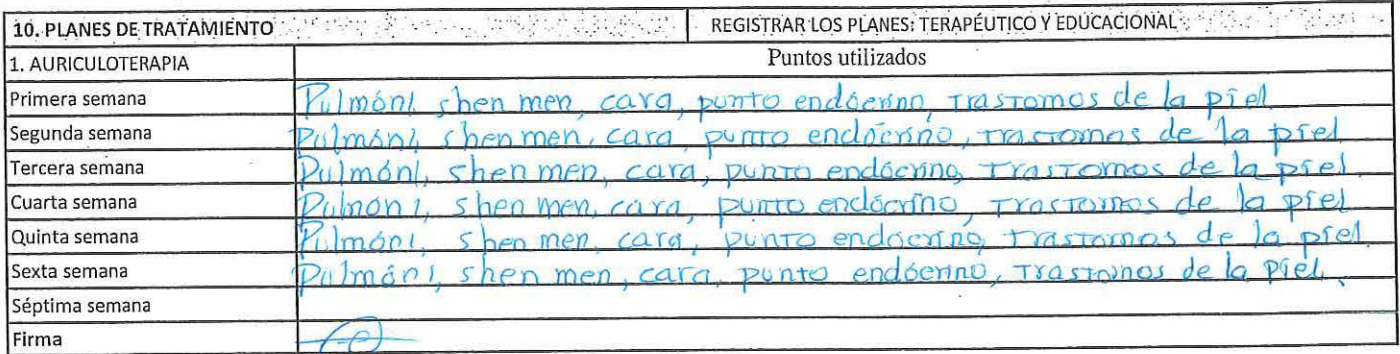 10. PLANES DE TRATAMIENTO REGISTRAR LOS PLANES: TERAPÉUTICO Y EDUCACIONAL
1. AURICULOTERAPIA Puntos utilizados
Primera semana Pulmón1, shen men, cara, punto endócrino, trastornos de la piel
Segunda semana Pulmón1, shen men, cara, punto endócrino, trastornos de la piel
Tercera semana Pulmón1, shen men, cara, punto endócrino, trastornos de la piel.
Cuarta semana Pulmón1, shen men, cara, punto endócrino, trastornos de la piel
Quinta semana Pulmón1, shen men, cara, punto endócrino, trastornos de la piel.
Sexta semana Pulmón1, shen men, cara, punto endócrino, trastornos de la piel.
Séptima semana
Firma